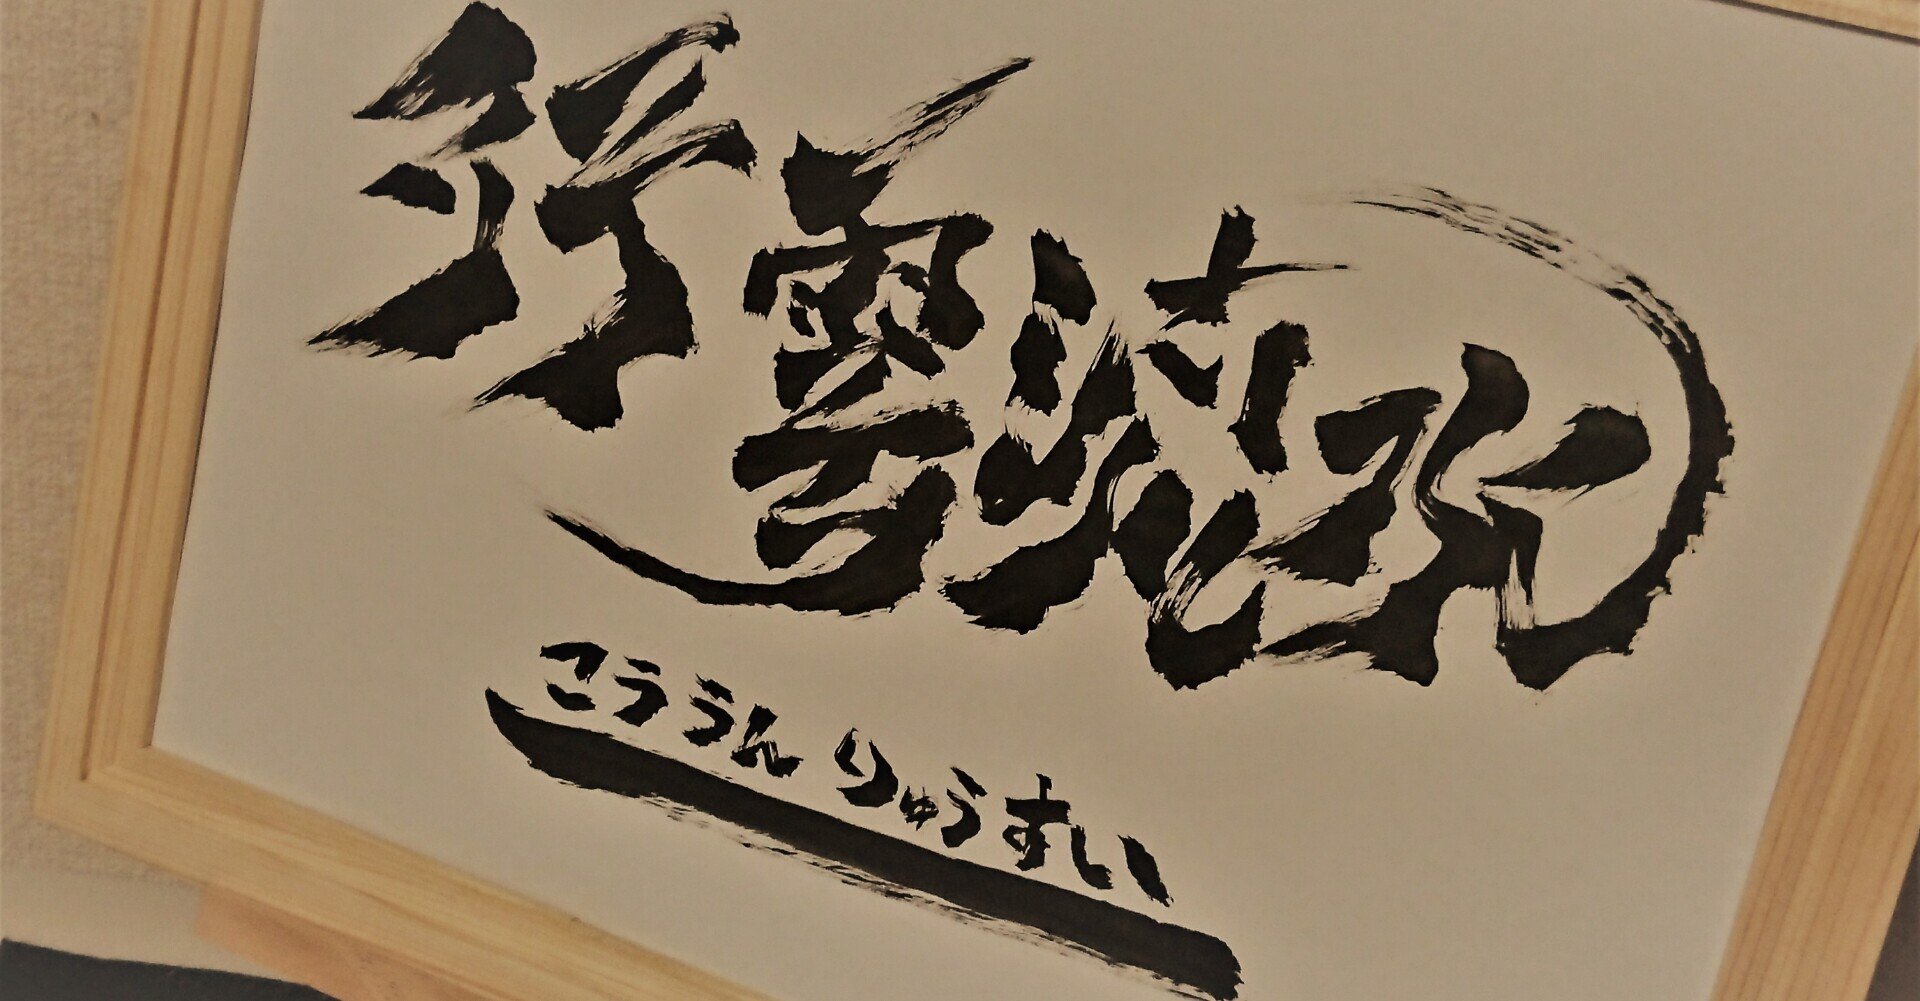 行雲流水
こううんりゅうすい